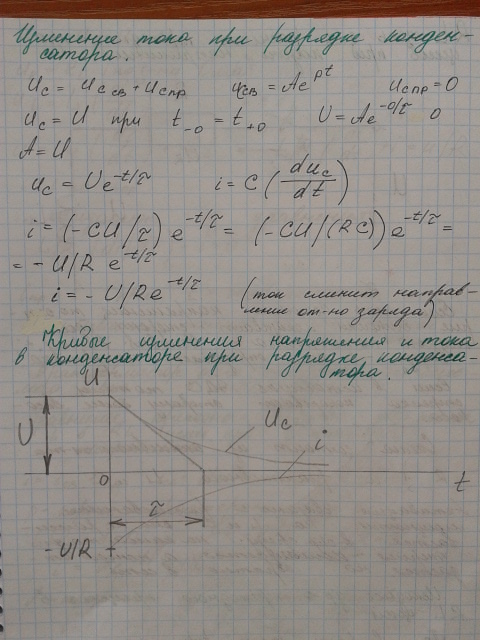 Изменение тока при разрядке конден-
сатора.
uc = uc св + uс пр   uсв = Ae^pt   uс пр = 0
uc = U при t-0 = t+0   U = Ae^-0/τ 0
A = U
uc = Ue^-t/τ   i = C (duc/dt)
i = (-CU/τ) e^-t/τ = (-CU/(RC)) e^-t/τ =
= - U/R e^-t/τ
i = - U/R e^-t/τ   (ток сменит направ-
ление от-но заряда)
Кривые изменения напряжения и тока
в конденсаторе при разрядке конденса-
тора.
U
U
uc
i
0
t
τ
- U/R